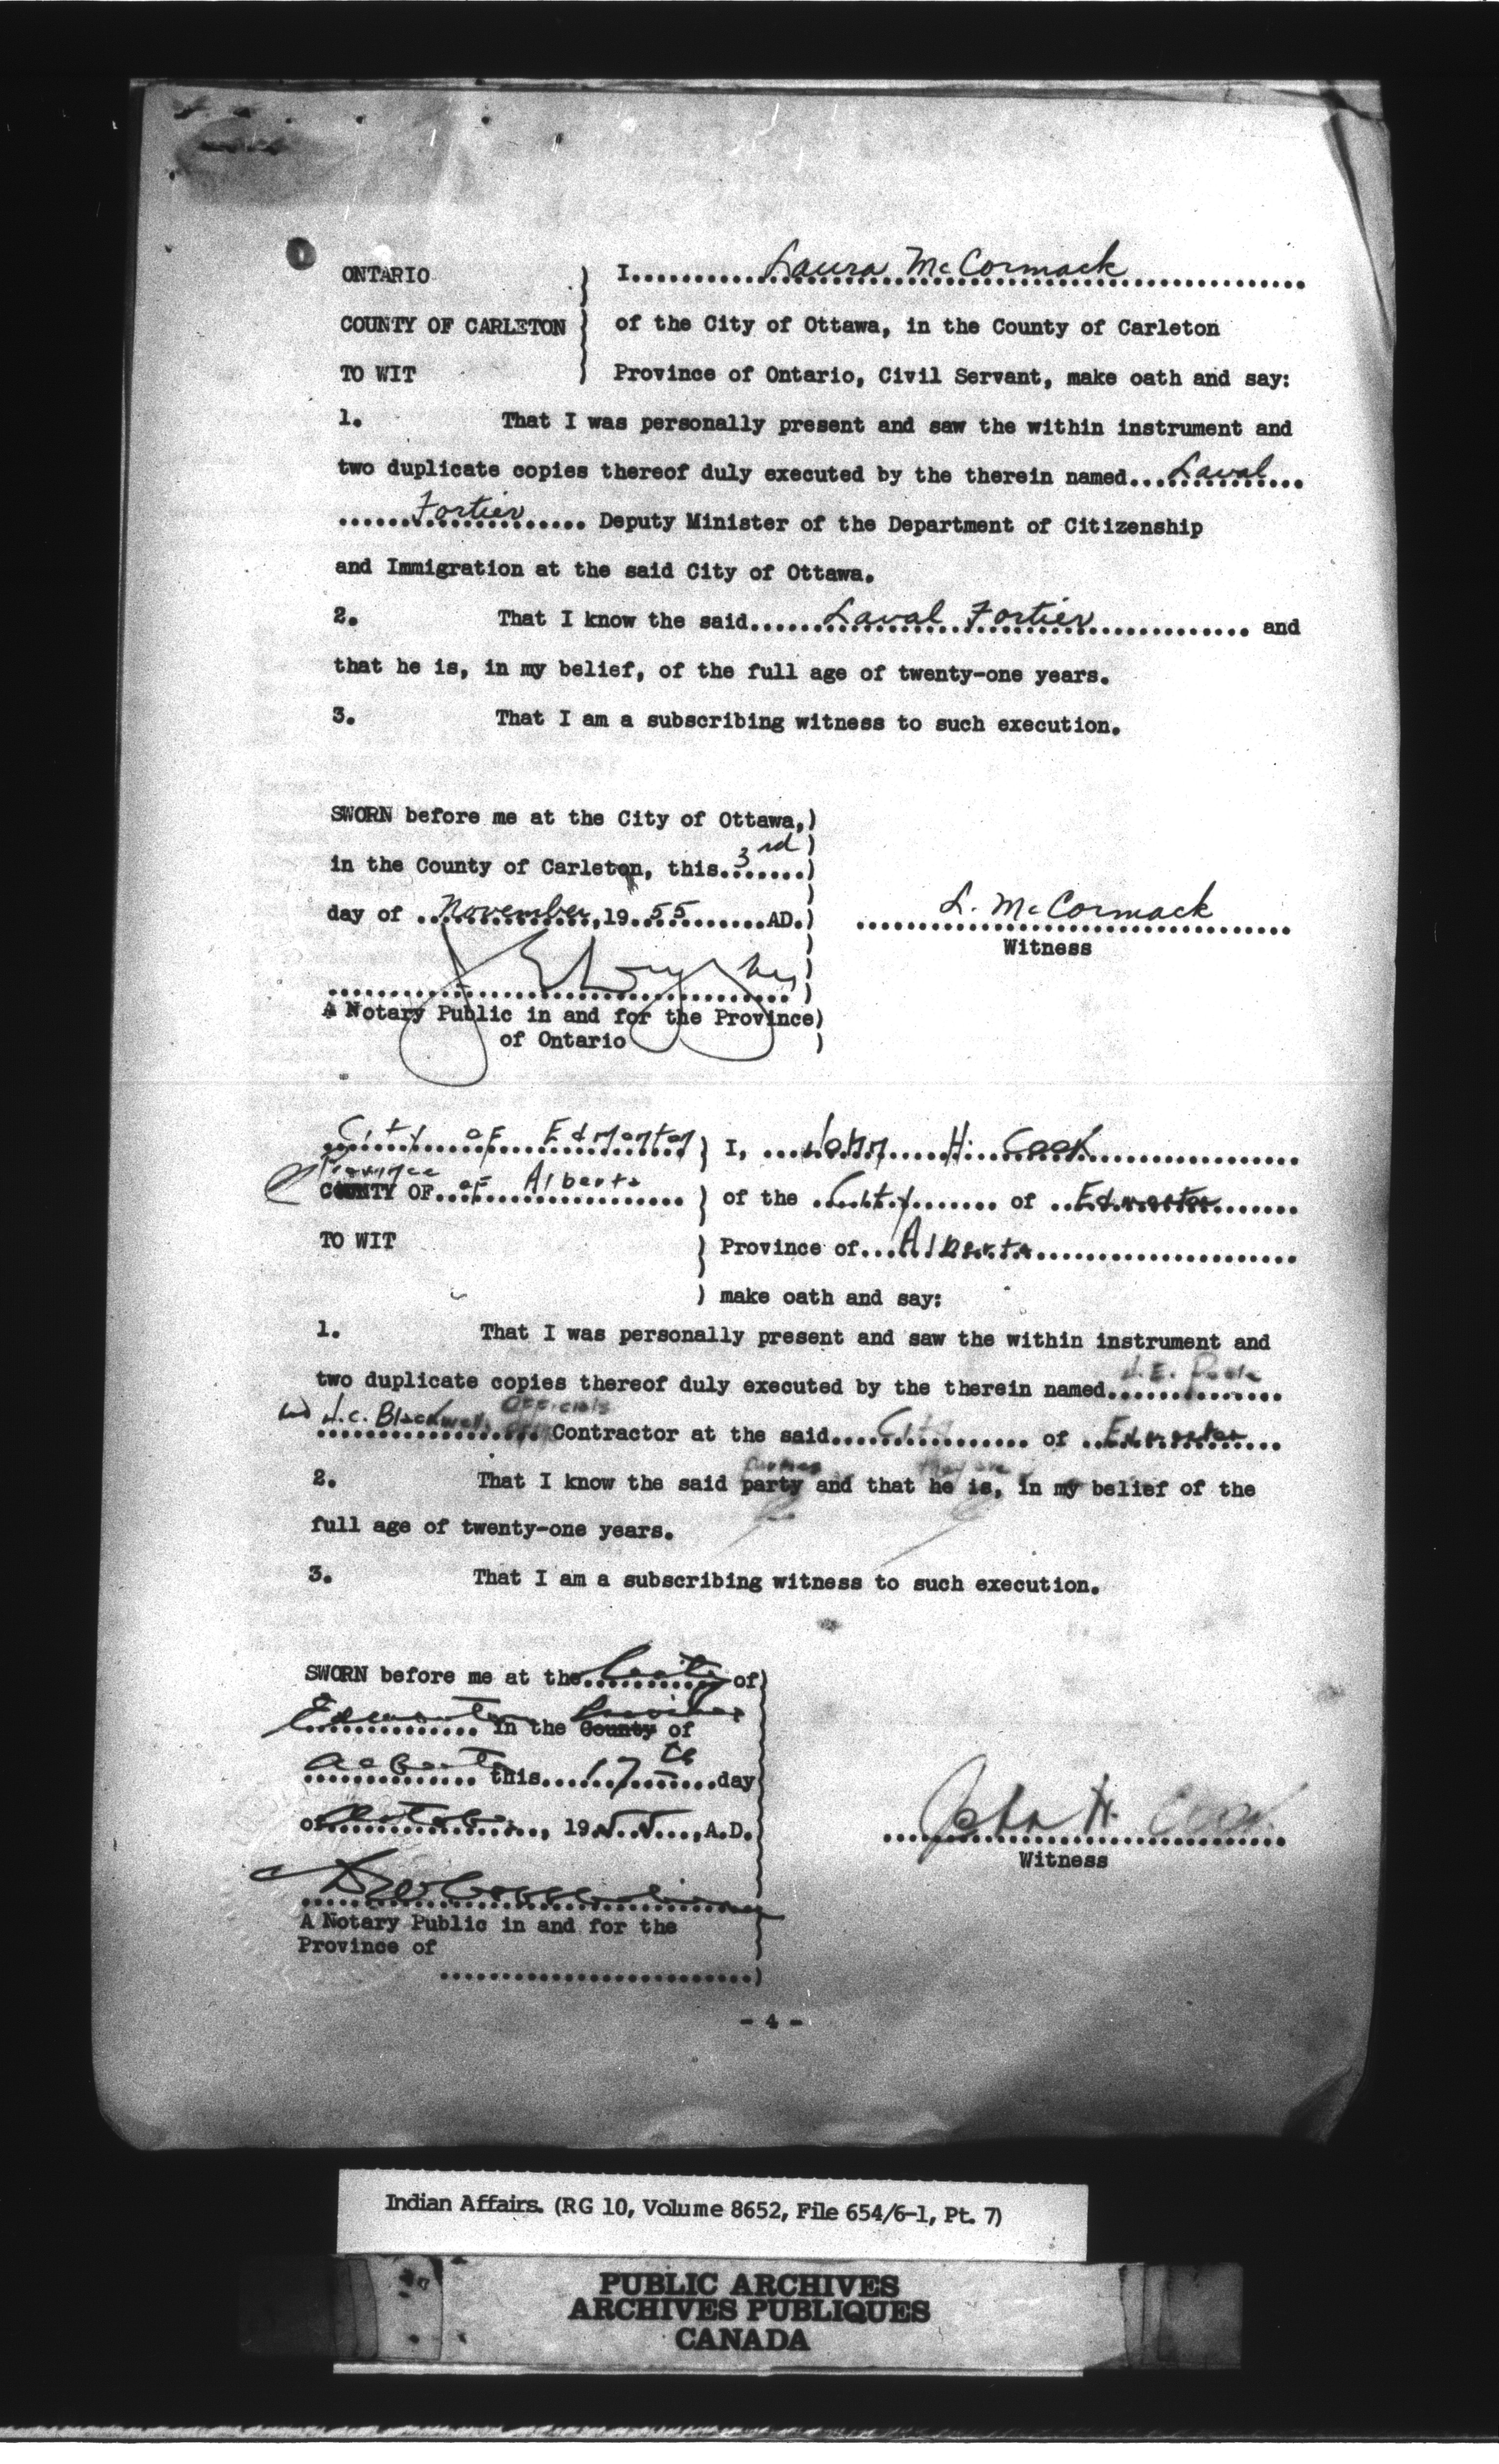 ONTARIO ) I..........Laura McCormack..........
COUNTY OF CARLETON ) of the City of Ottawa, in the County of Carleton
TO WIT ) Province of Ontario, Civil Servant, make oath and say:
1. That I was personally present and saw the within instrument and
two duplicate copies thereof duly executed by the therein named...Laval...
......Fortier...... Deputy Minister of the Department of Citizenship
and Immigration at the said City of Ottawa.
2. That I know the said......Laval Fortier.......... and
that he is, in my belief, of the full age of twenty-one years.
3. That I am a subscribing witness to such execution.
SWORN before me at the City of Ottawa,)
in the County of Carleton, this.3rd....)
day of ..November.,19.55......AD.) L. McCormack
Witness
A Notary Public in and for the Province)
of Ontario )
City of Edmonton ) I, ...John H. Cook..........
Province
COUNTY OF...of Alberta........ ) of the ..City....... of ..Edmonton......
TO WIT ) Province of...Alberta..........
) make oath and say:
1. That I was personally present and saw the within instrument and
two duplicate copies thereof duly executed by the therein named..J.E. Poole..
and J.C. Blackwell, Officials Contractor at the said....City...... of ..Edmonton...
parties they are
2. That I know the said party and that he is, in my belief of the
full age of twenty-one years.
3. That I am a subscribing witness to such execution.
SWORN before me at the..City..of)
Edmonton in the County Province of
Alberta this....17th....day
of October, 1955, A.D. John H. Cook
Witness
A Notary Public in and for the
Province of
..........................)
- 4 -
Indian Affairs. (RG 10, Volume 8652, File 654/6-1, Pt. 7)
PUBLIC ARCHIVES
ARCHIVES PUBLIQUES
CANADA